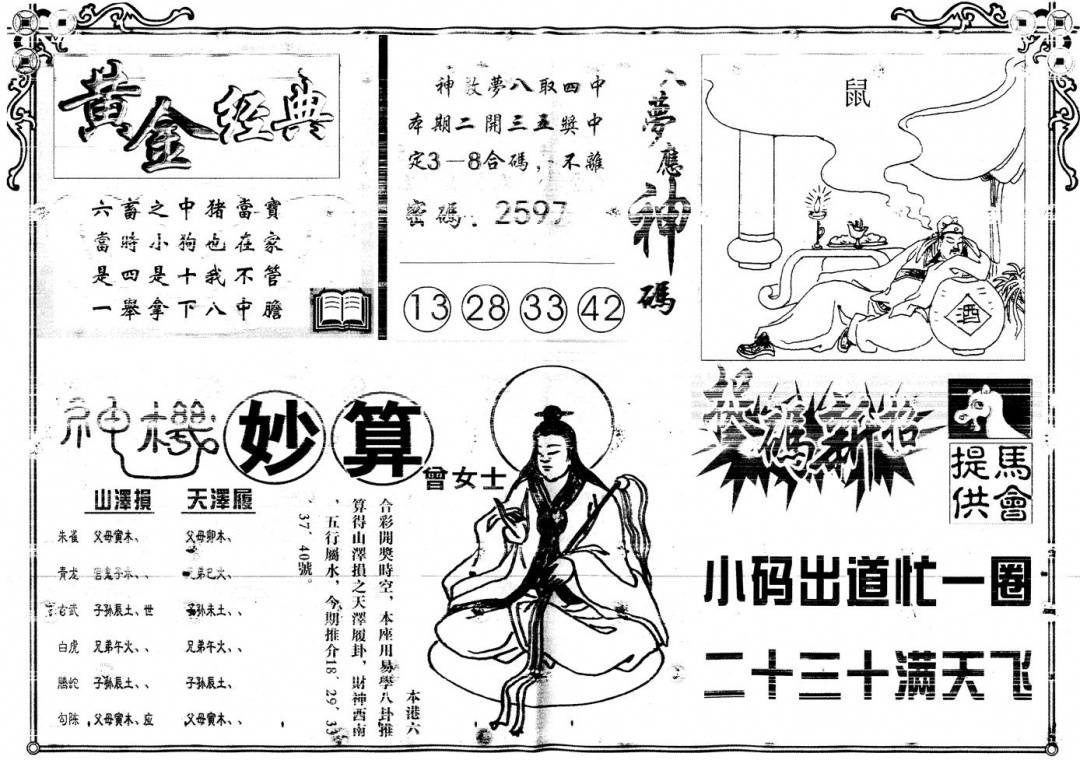 黄金经典
六畜之中猪當寶
當時小狗也在家
是四是十我不管
一舉拿下八中膽
神教夢八取四中
本期二開三五獎中
定3一8合碼，不離
密碼：2597
13 28 33 42
夢應神碼
鼠
酒
神機妙算
曾女士
山澤損 天澤履
朱雀 父母寅木、 父母卯木、
青龙 官鬼子水、、 兄弟巳火、
玄武 子孙辰土、世 子孙未土、、
白虎 兄弟午火、、 兄弟午火、
騰蛇 子孙辰土、、 子孙辰土、
勾陈 父母寅木、应 父母寅木、、
本港六
合彩開奬時空，本座用易學八卦推
算得山澤損之天澤履卦，財神西南
，五行屬水，今期推介18、29、33
、37、40號。
捉碼新招
馬會提供
小码出道忙一圈
二十三十满天飞